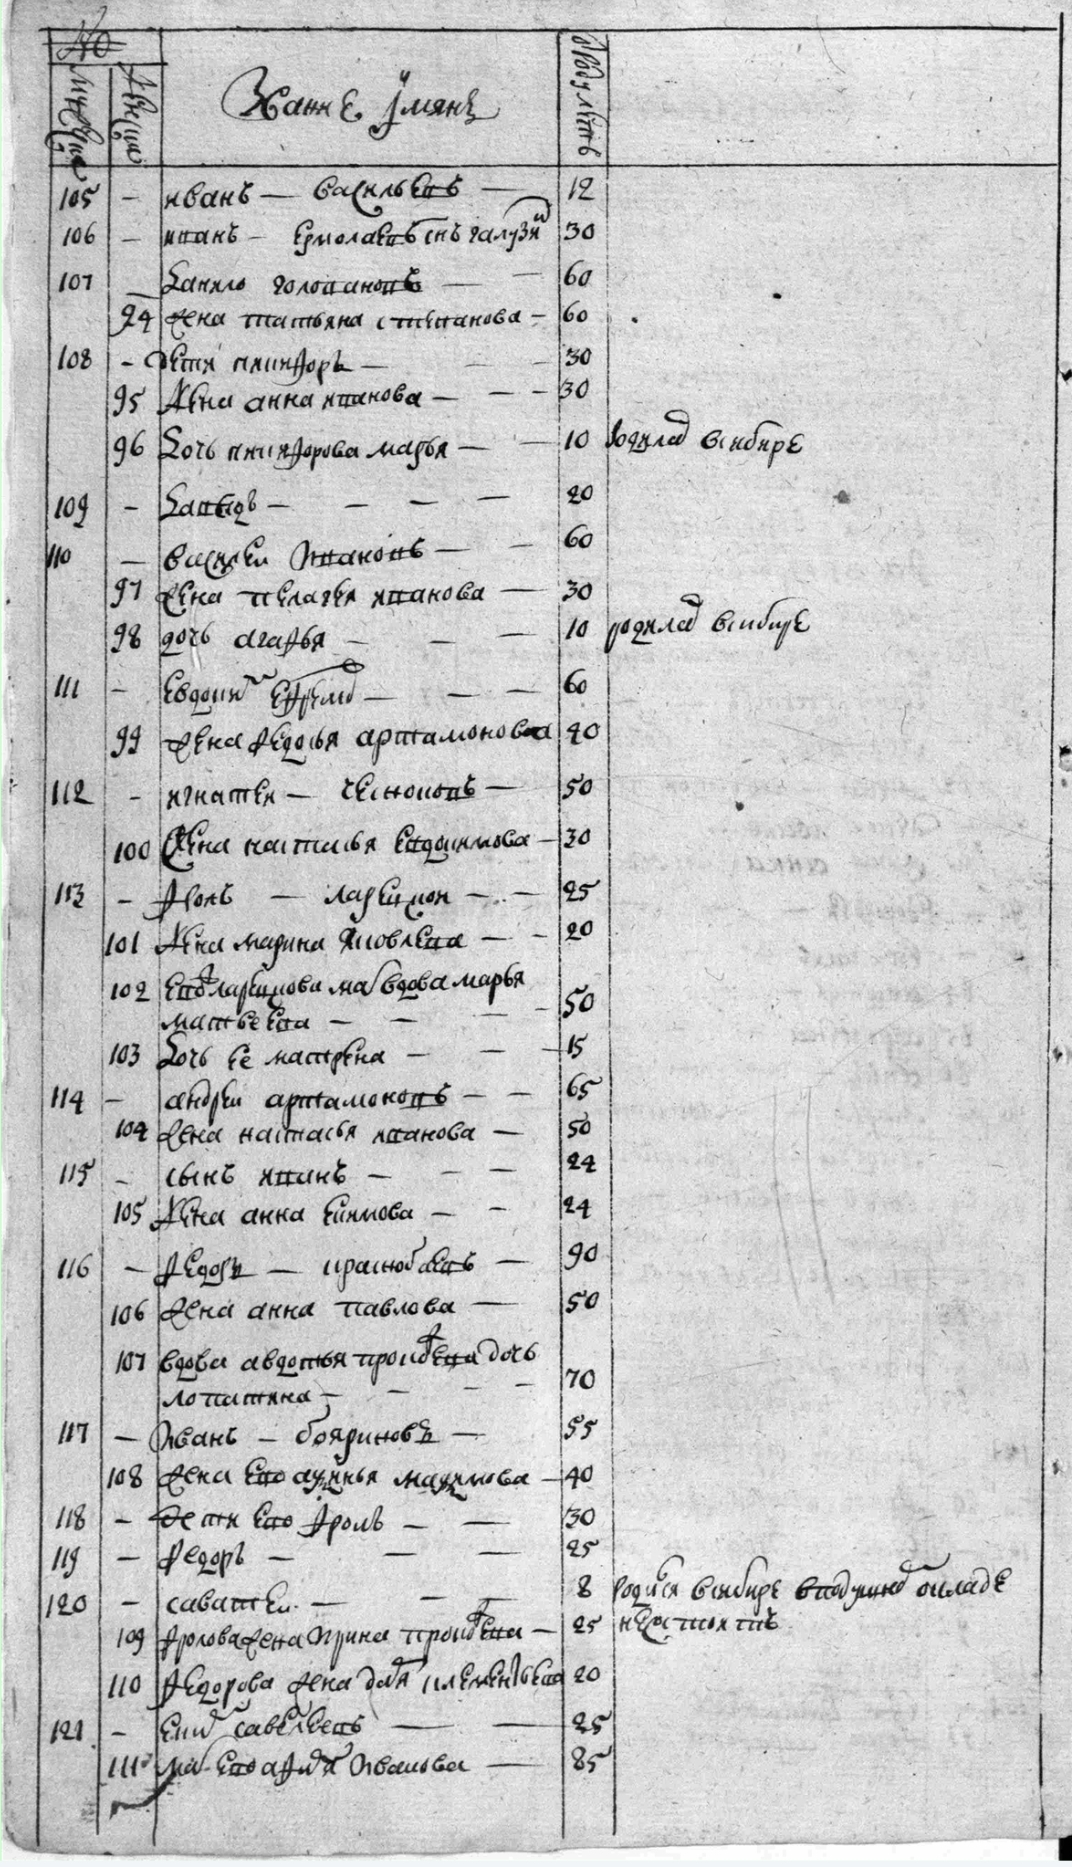 №
мужеска
женска
Какие имяна
сколку лѣтъ
105 — иванъ — васильевъ — 12
106 — иванъ — ермолаевъ снъ галузи 30
107 данило голованов — 60
94 жена татьяна степанова — 60
108 — дети никифоръ — 30
95 жена анна иванова — 30
96 дочь никифорова марья — 10 родилас в сибире
109 — давыдъ — 20
110 — василеи ивановъ — 60
97 жена пелагея иванова — 30
98 дочь агафья — 10 родилас в сибире
111 — евдоким ефремо — 60
99 жена федосья артамонова 40
112 — игнатеи — 50
100 жена наталья евдокимова — 30
113 — фролъ — ларионов — 25
101 жена марина яковлева — 20
102 ево ларионова мат вдова марья
матвеева — 50
103 дочь ее матрена — 15
114 — андреи артамоновъ — 65
104 жена настасья иванова — 50
115 — сынъ иванъ — 24
105 жена анна екимова — 24
116 — федоръ — 90
106 жена анна павлова — 50
107 вдова авдотья прокофева дочь
лопатина — 70
117 — иванъ — бояриновъ — 55
108 жена ево аксинья максимова — 40
118 — дети ево фролъ — 30
119 — федоръ — 25
120 — саватеи — 8 родился в сибире в подушном окладе
109 фролова жена ирина прокофева — 25 не состоитъ
110 федорова жена 20
121 — еким савельевъ — 25
111 мат ево афимя иванова — 85